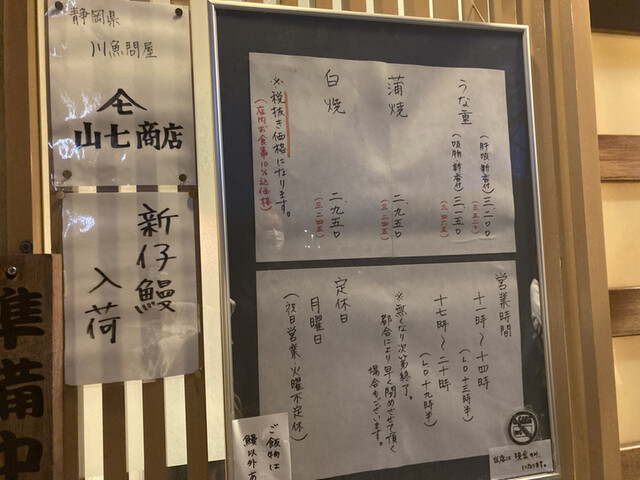 静岡県
川魚問屋
山七商店
新仔鰻
入荷
準備中
うな重
(肝吸・新香付) 三二〇〇
(三五二〇)
(吸物・新香付) 三一五〇
(三四六五)
蒲焼 二、九五〇
(三二四五)
白焼 二、九五〇
(三二四五)
※税抜き価格になります。
(店内お食事10%込価格)
営業時間
十一時〜十四時
(LO十三時半)
十七時〜二十時
(LO十九時半)
※無くなり次第終了。
都合により早く閉めさせて頂く
場合もございます。
定休日
月曜日
(祝日営業 火曜不定休)
ご飯物は
鰻以外
当店は現金のみ
になります。